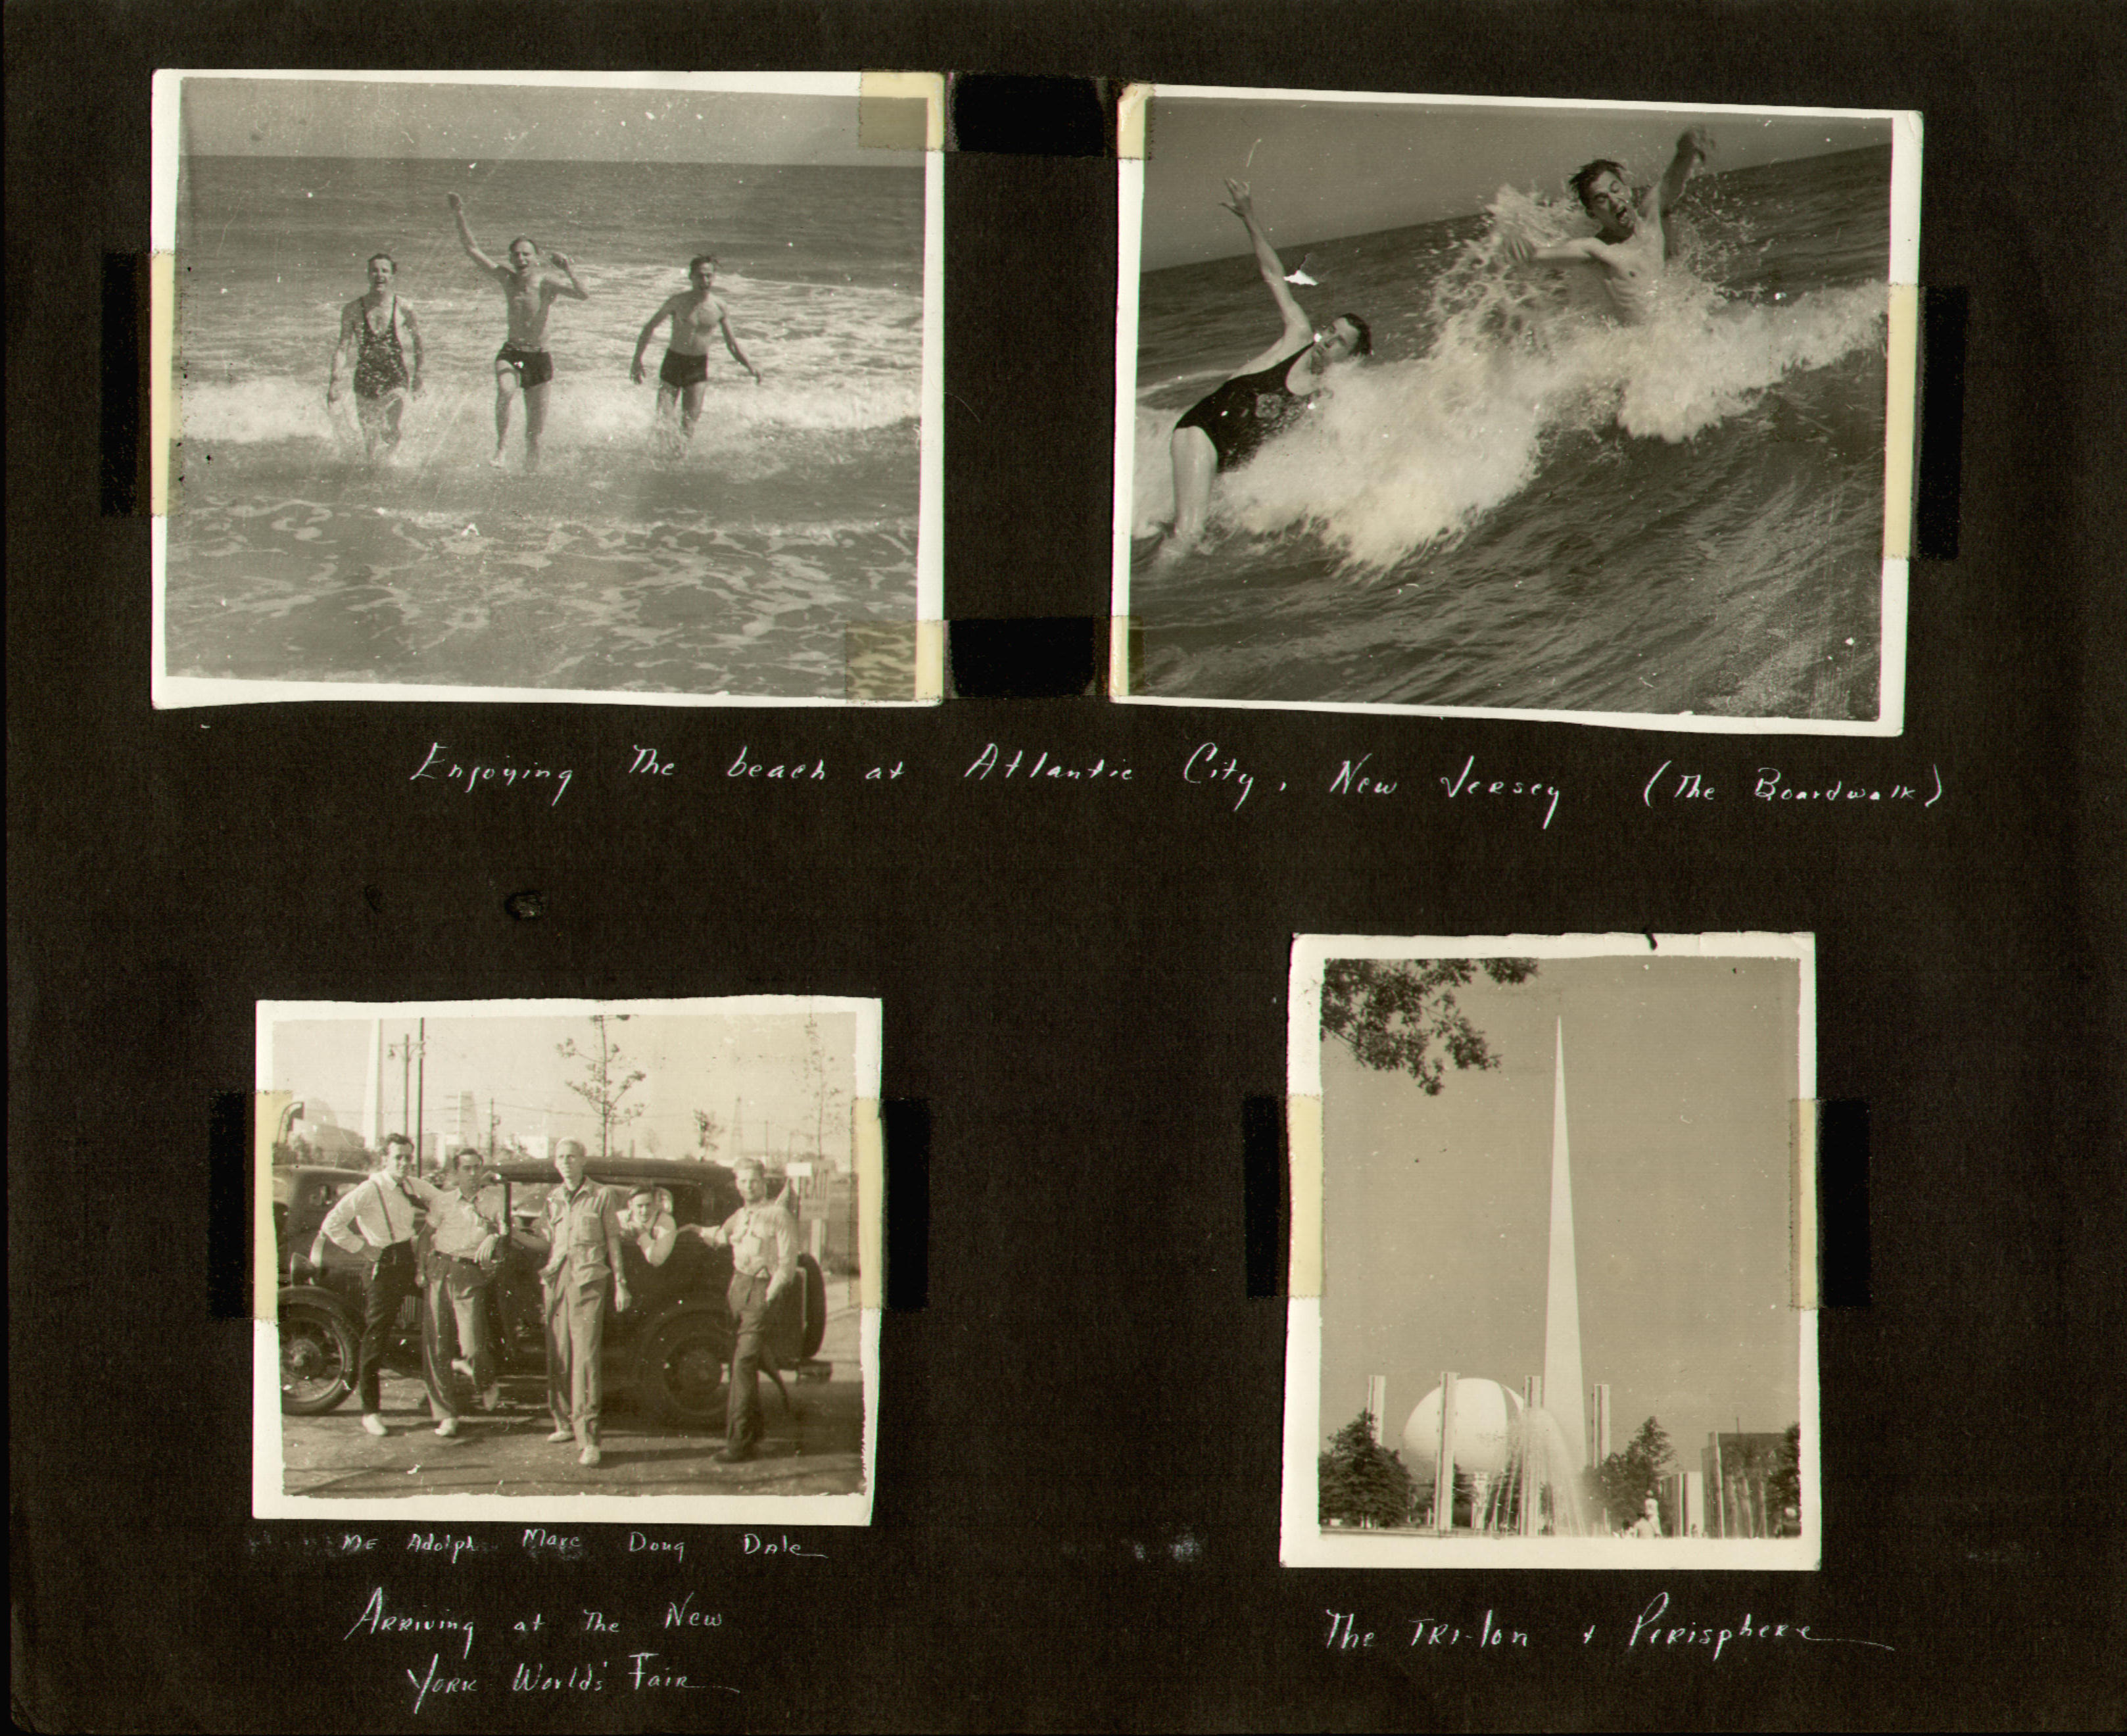 Enjoying The beach at Atlantic City, New Jersey (The Boardwalk)
EXIT
ME Adolph Marc Doug Dale
Arriving at The New
York World's Fair
The TRI-lon + Perisphere